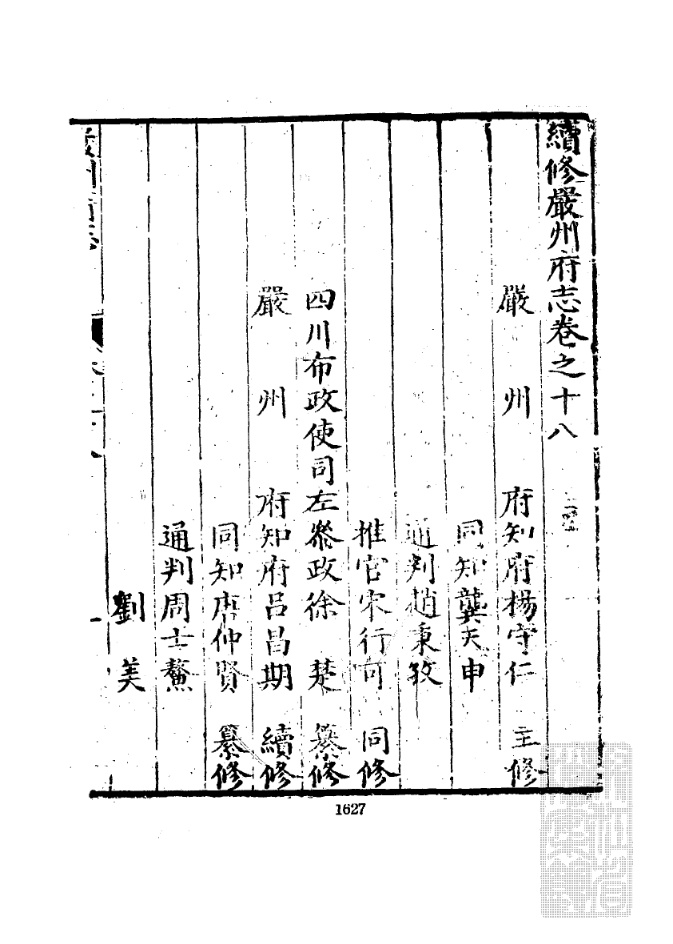 續修嚴州府志卷之十八
嚴州府知府楊守仁 主修
同知龔天申
通判趙秉敉
推官宋行可 同修
四川布政使司左叅政徐楚 纂修
嚴州府知府呂昌期 續修
同知唐仲賢 纂修
通判周士鰲
劉美
嚴州府志
一
1627